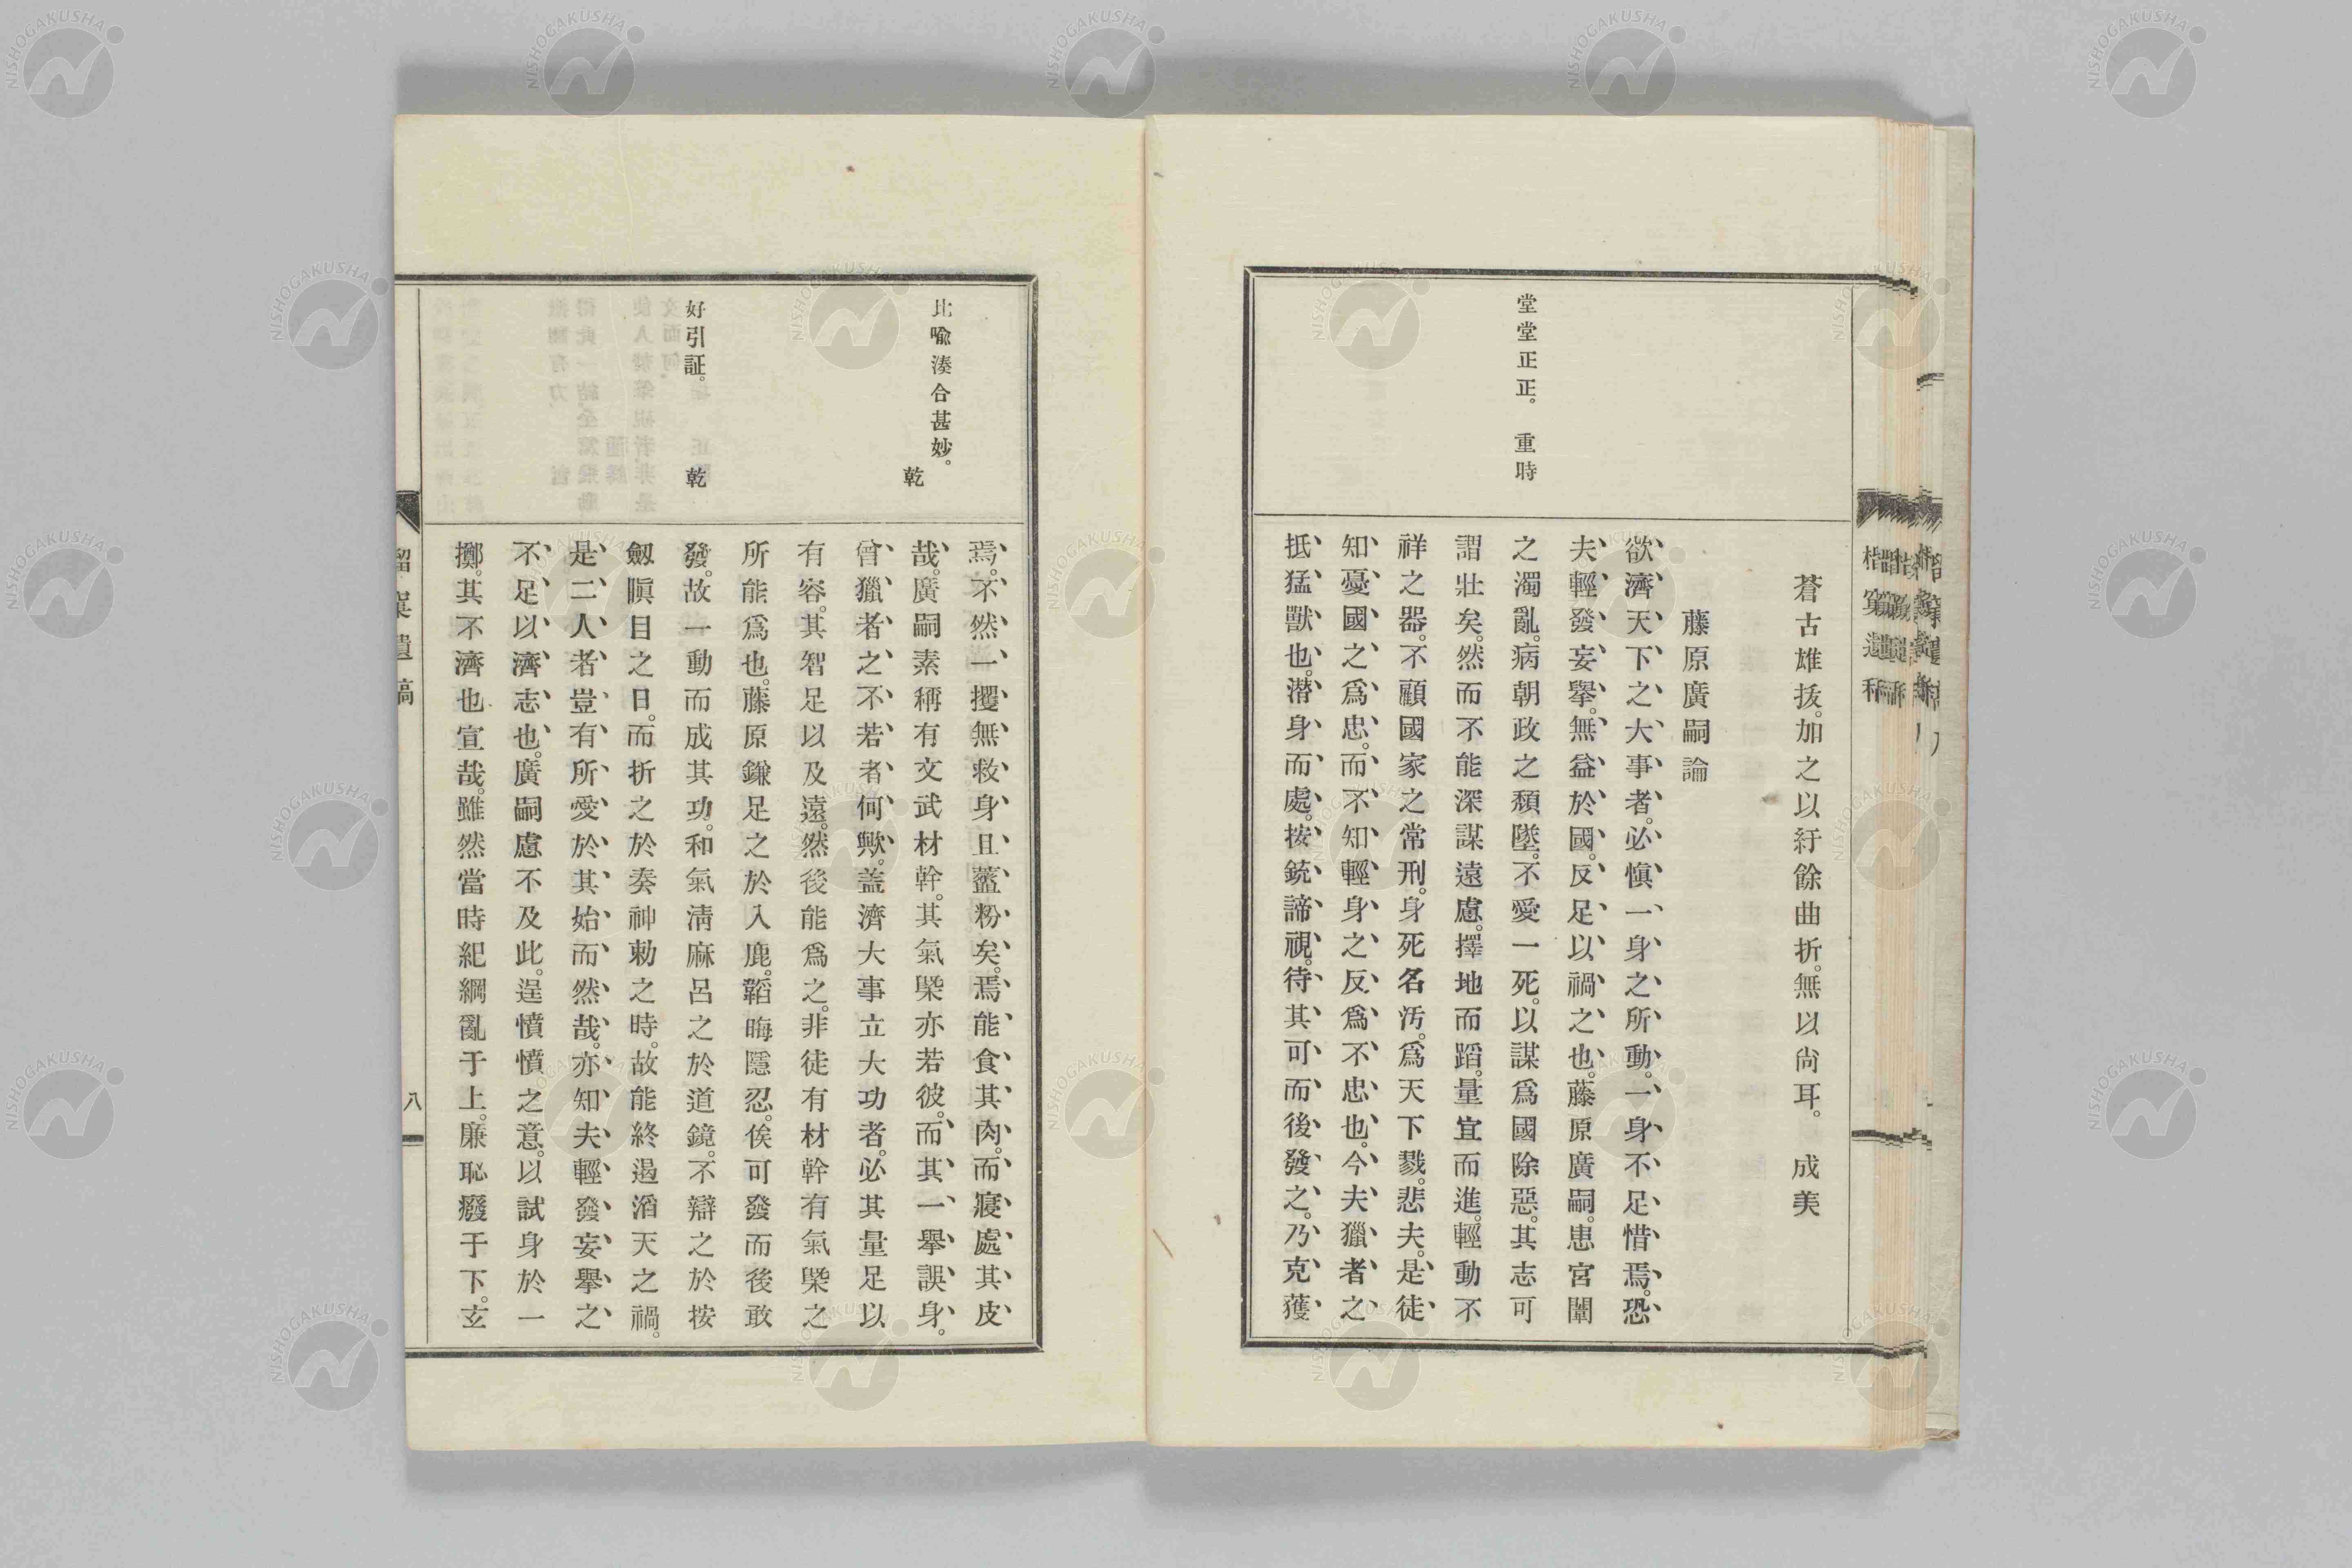 蒼古雄抜。加之以紆餘曲折。無以尙耳。 成美
藤原廣嗣論
堂堂正正。 重時
欲濟天下之大事者。必愼一身之所動。一身不足惜焉。恐
夫輕發妄擧。無益於國。反足以禍之也。藤原廣嗣。患宮闈
之濁亂。病朝政之頽墜。不愛一死。以謀爲國除惡。其志可
謂壯矣。然而不能深謀遠慮。擇地而蹈。量宜而進。輕動不
祥之器。不顧國家之常刑。身死名汚。爲天下戮。悲夫。是徒
知憂國之爲忠。而不知輕身之反爲不忠也。今夫獵者之
抵猛獸也。潛身而處。按銃諦視。待其可而後發之。乃克獲
比喩湊合甚妙。
乾
焉。不然一攫無救身且虀粉矣。焉能食其肉。而寢處其皮
哉。廣嗣素稱有文武材幹。其氣槩亦若彼。而其一擧誤身。
曾獵者之不若者何歟。蓋濟大事立大功者。必其量足以
有容。其智足以及遠。然後能爲之。非徒有材幹有氣槩之
所能爲也。藤原鎌足之於入鹿。韜晦隱忍。俟可發而後敢
好引証。 乾
發。故一動而成其功。和氣淸麻呂之於道鏡。不辯之於按
劔瞋目之日。而折之於奏神勅之時。故能終遏滔天之禍。
是二人者豈有所愛於其始而然哉。亦知夫輕發妄擧之
不足以濟志也。廣嗣慮不及此。逞憤憤之意。以試身於一
擲。其不濟也宜哉。雖然當時紀綱亂于上。廉恥廢于下。玄
遺稿 八
NISHOGAKUSHA